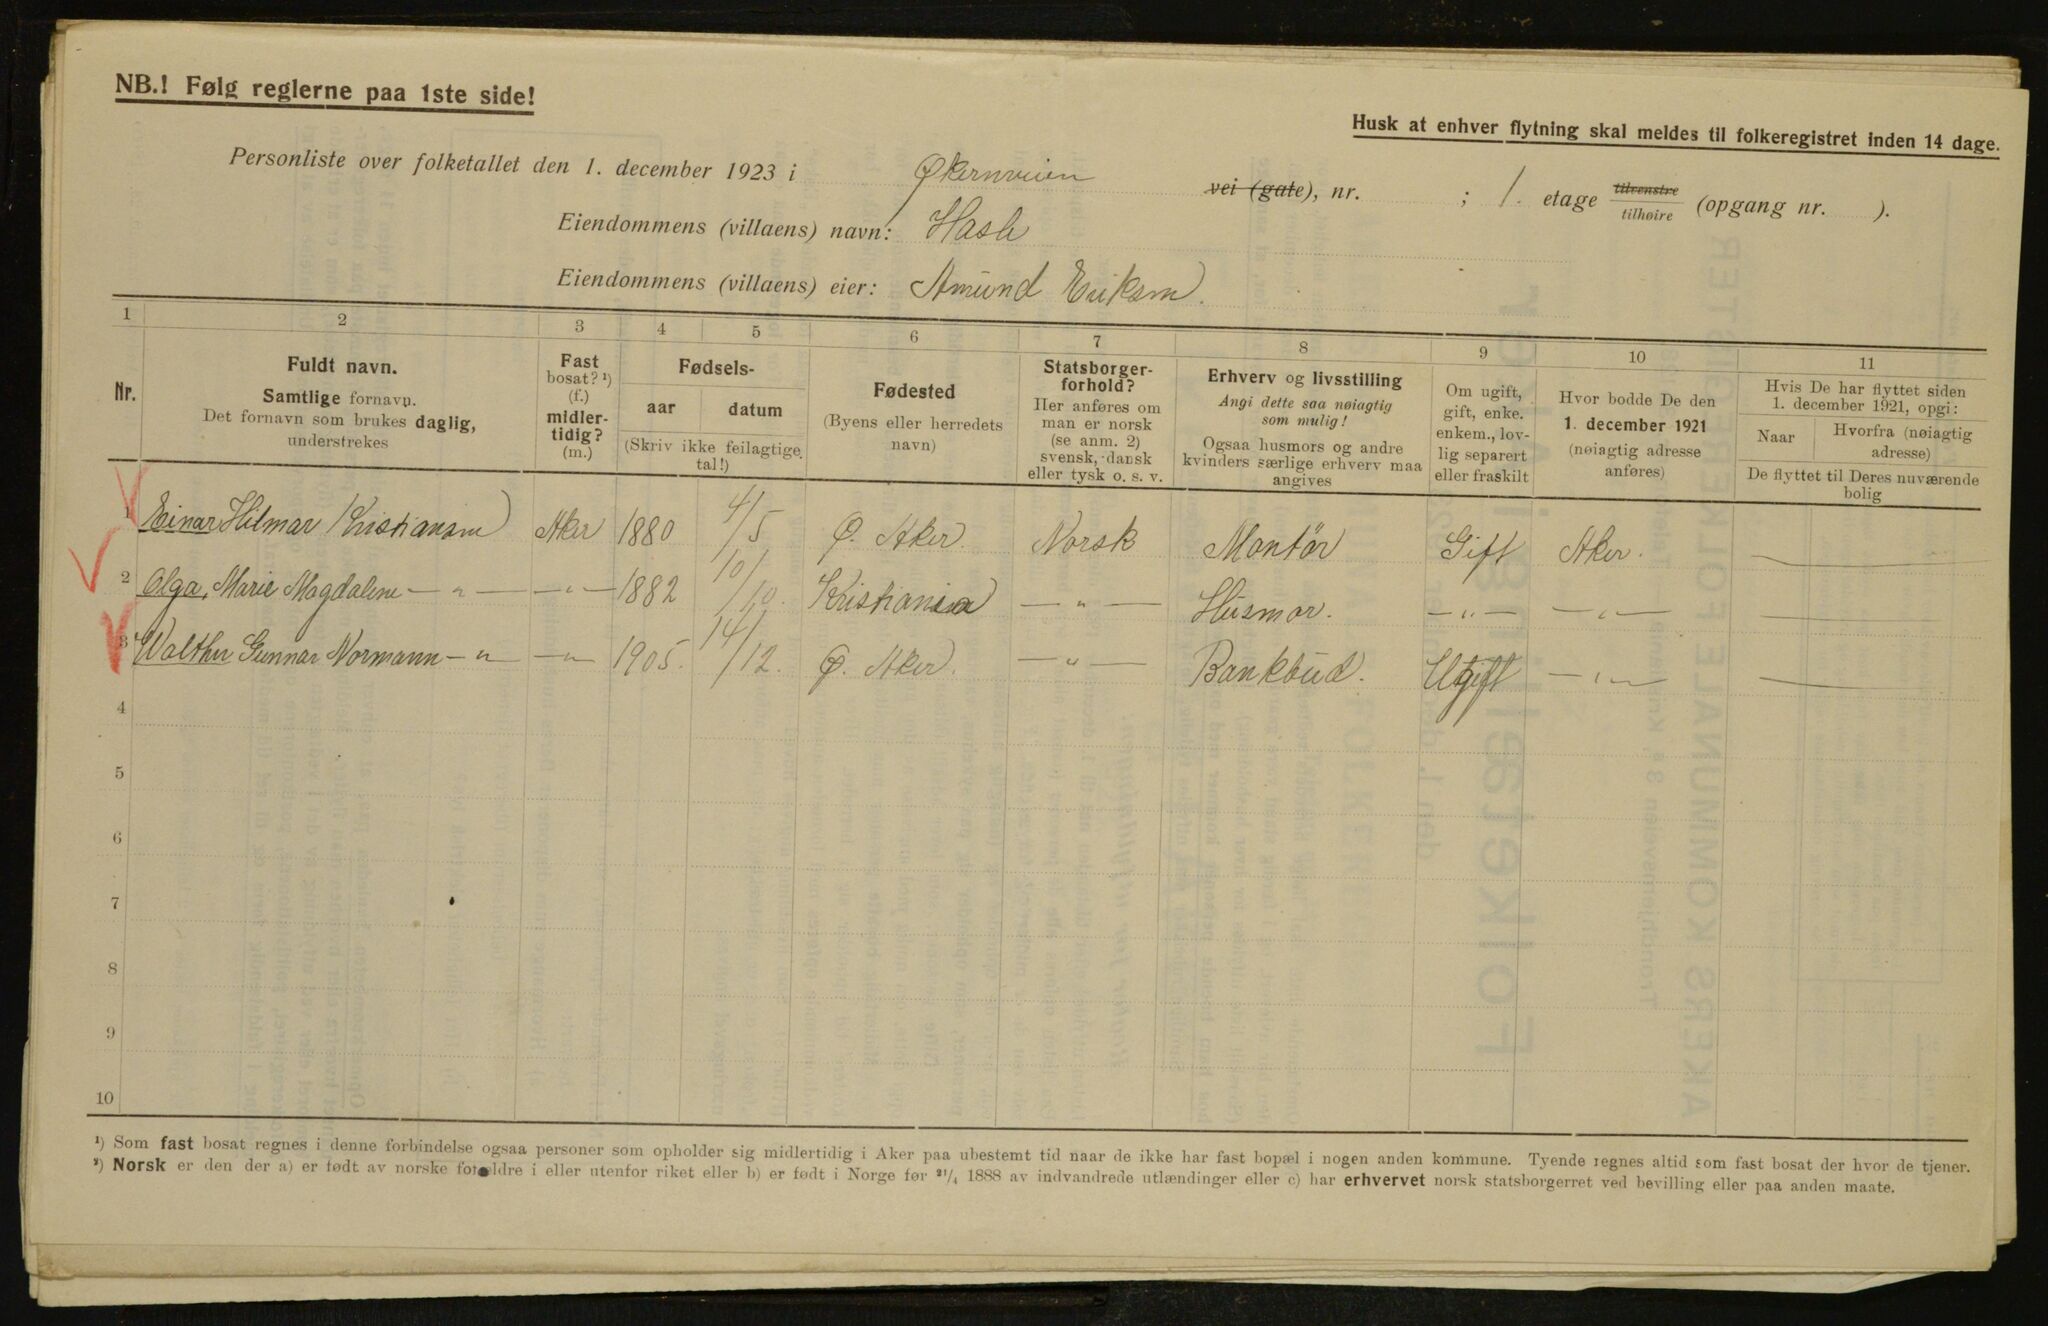 NB.! Følg reglerne paa 1ste side!
Husk at enhver flytning skal meldes til folkeregistret inden 14 dage.
Personliste over folketallet den 1. december 1923 i Økernveien vei (gate), nr. ; 1. etage tilvenstre tilhøire (opgang nr. ).
Eiendommens (villaens) navn: Hasle
Eiendommens (villaens) eier: Amund Eriksen.
1 2 3 4 5 6 7 8 9 10 11
Nr.
Fuldt navn.
Samtlige fornavn.
Det fornavn som brukes daglig,
understrekes
Fast
bosat? ¹)
(f.)
midler-
tidig?
(m.)
Fødsels-
aar datum
(Skriv ikke feilagtige
tal!)
Fødested
(Byens eller herredets
navn)
Statsborger-
forhold?
Her anføres om
man er norsk
(se anm. 2)
svensk, dansk
eller tysk o. s. v.
Erhverv og livsstilling
Angi dette saa nøiagtig
som mulig!
Ogsaa husmors og andre
kvinders særlige erhverv maa
angives
Om ugift,
gift, enke.
enkem., lov-
lig separert
eller fraskilt
Hvor bodde De den
1. december 1921
(nøiagtig adresse
anføres)
Hvis De har flyttet siden
1. december 1921, opgi:
Naar Hvorfra (nøiagtig
adresse)
De flyttet til Deres nuværende
bolig
1 Einar Hilmar Kristiansen Aker 1880 4/5 Ø. Aker. Norsk Montør Gift Aker. —
2 Olga, Marie Magdalene — " — — " — 1882 10/10. Kristiania — " — Husmor. — " — — " — —
3 Walther Gunnar Normann — " — — " — 1905. 14/12. Ø. Aker. — " — Bankbud. Ugift — " — —
4
5
6
7
8
9
10
¹) Som fast bosat regnes i denne forbindelse ogsaa personer som opholder sig midlertidig i Aker paa ubestemt tid naar de ikke har fast bopæl i nogen anden kommune. Tyende regnes altid som fast bosat der hvor de tjener.
²) Norsk er den der a) er født av norske forældre i eller utenfor riket eller b) er født i Norge før ²¹/₄ 1888 av indvandrede utlændinger eller c) har erhvervet norsk statsborgerret ved bevilling eller paa anden maate.